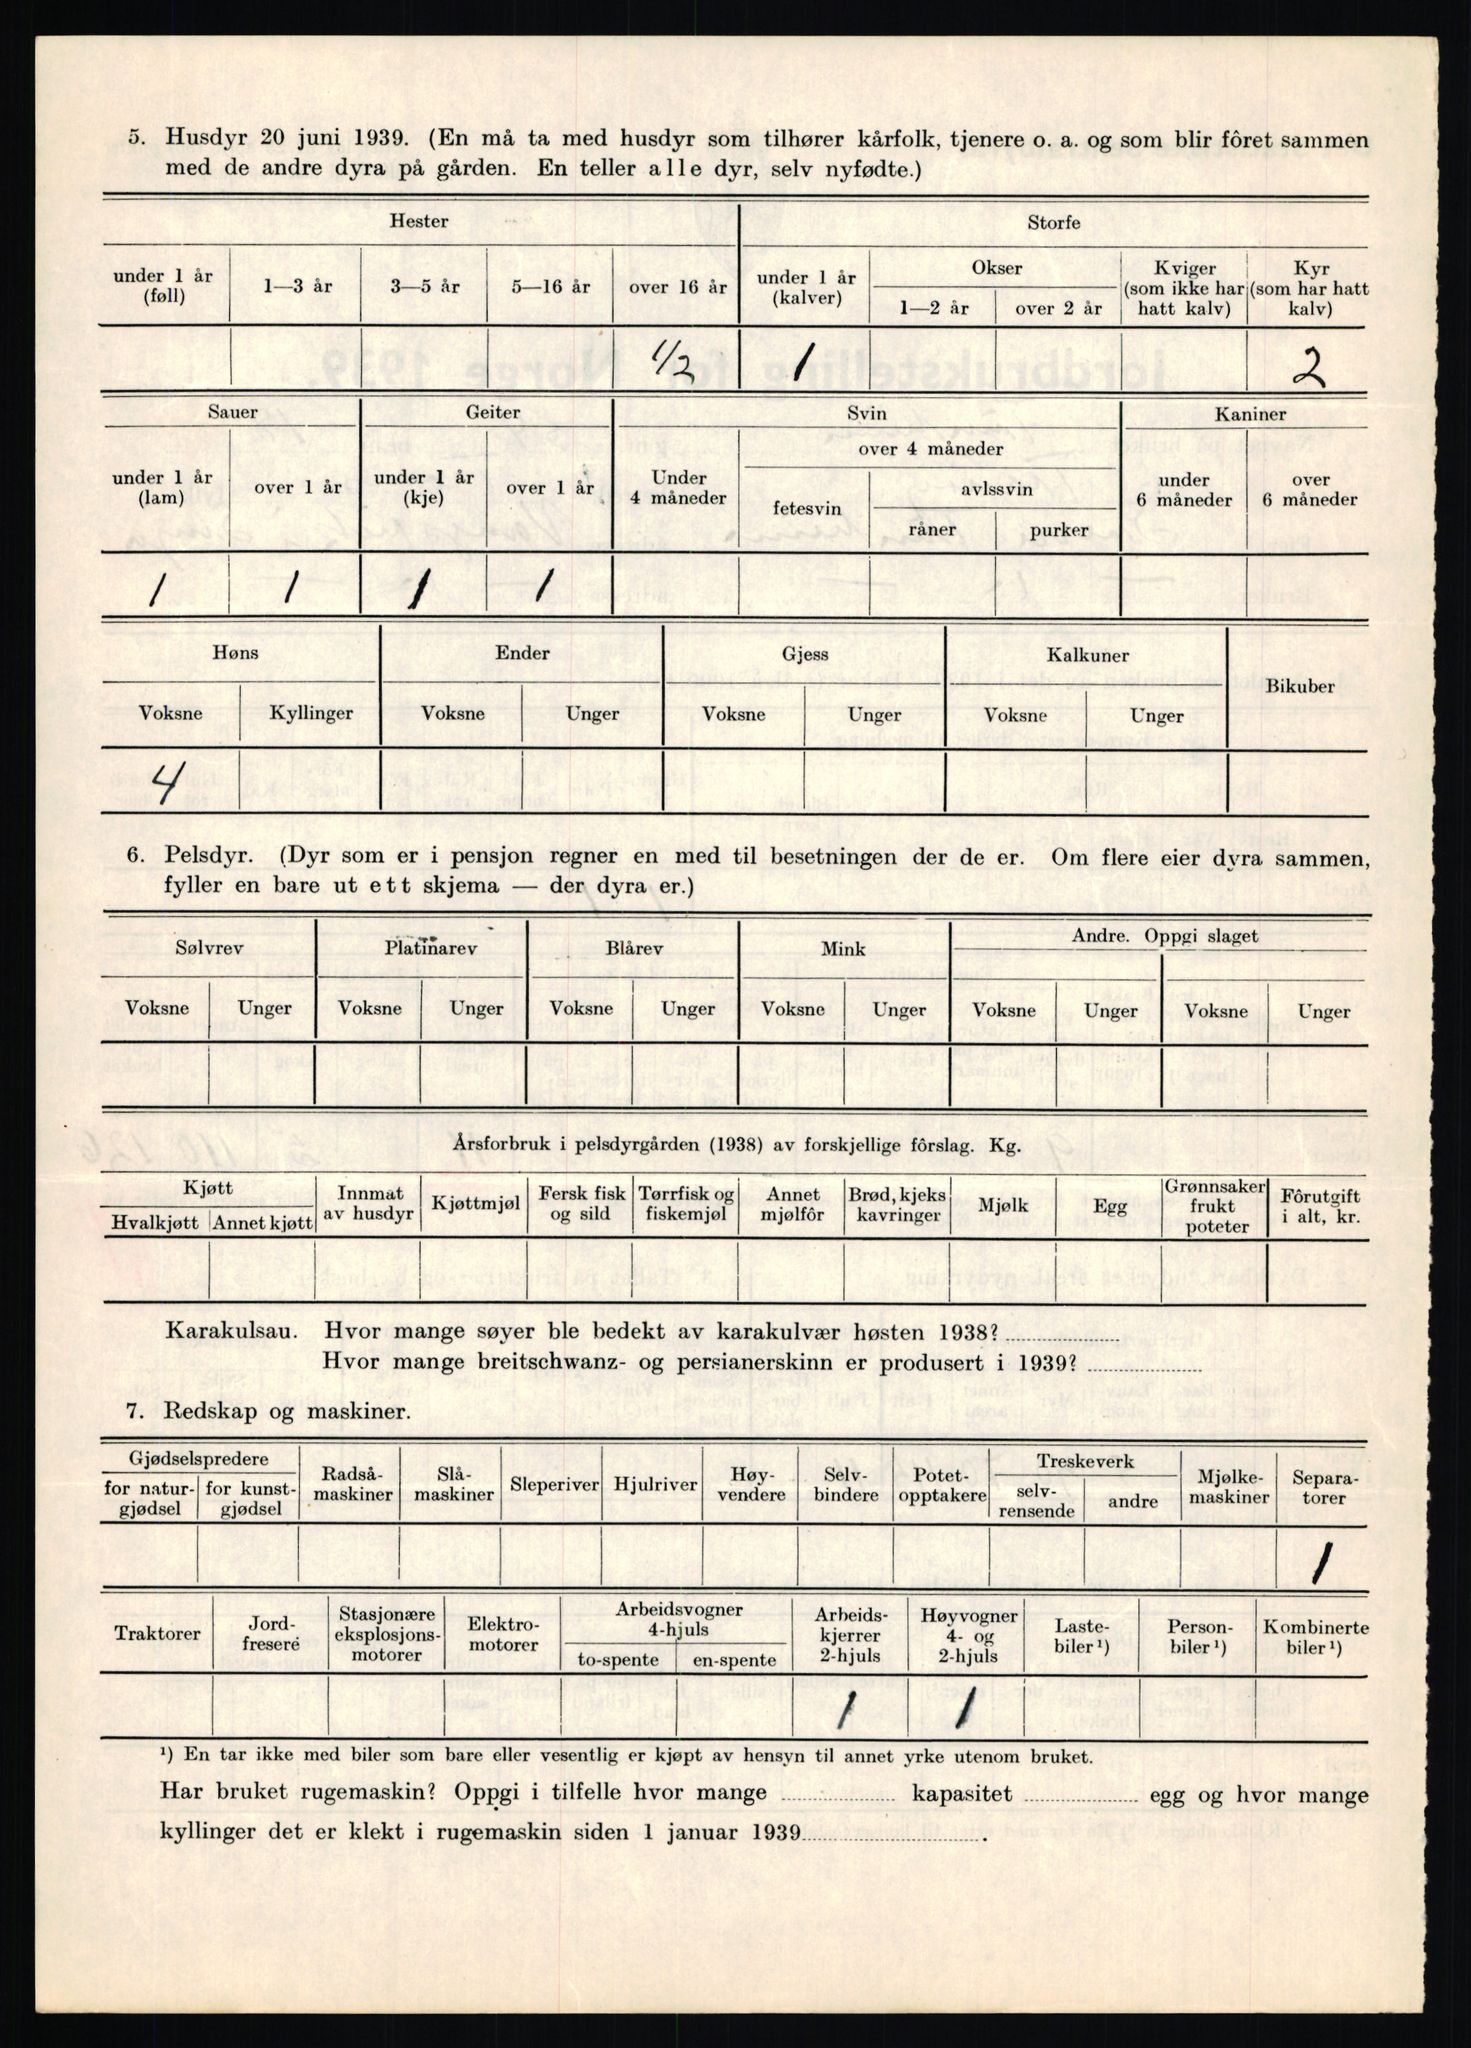 5. Husdyr 20 juni 1939. (En må ta med husdyr som tilhører kårfolk, tjenere o. a. og som blir fôret sammen
med de andre dyra på gården. En teller alle dyr, selv nyfødte.)
Hester Storfe
under 1 år (føll) 1—3 år 3—5 år 5—16 år over 16 år under 1 år (kalver) Okser 1—2 år over 2 år Kviger (som ikke har hatt kalv) Kyr (som har hatt kalv)
1/2 1 2
Sauer Geiter Svin Kaniner
under 1 år (lam) over 1 år under 1 år (kje) over 1 år Under 4 måneder over 4 måneder fetesvin avlssvin råner purker under 6 måneder over 6 måneder
1 1 1 1
Høns Ender Gjess Kalkuner Bikuber
Voksne Kyllinger Voksne Unger Voksne Unger Voksne Unger
4
6. Pelsdyr. (Dyr som er i pensjon regner en med til besetningen der de er. Om flere eier dyra sammen,
fyller en bare ut ett skjema — der dyra er.)
Sølvrev Platinarev Blårev Mink Andre. Oppgi slaget
Voksne Unger Voksne Unger Voksne Unger Voksne Unger Voksne Unger Voksne Unger
Årsforbruk i pelsdyrgården (1938) av forskjellige fôrslag. Kg.
Kjøtt Hvalkjøtt Annet kjøtt Innmat av husdyr Kjøttmjøl Fersk fisk og sild Tørrfisk og fiskemjøl Annet mjølfôr Brød, kjeks kavringer Mjølk Egg Grønnsaker frukt poteter Fôrutgift i alt, kr.
Karakulsau. Hvor mange søyer ble bedekt av karakulvær høsten 1938?
Hvor mange breitschwanz- og persianerskinn er produsert i 1939?
7. Redskap og maskiner.
Gjødselspredere for naturgjødsel for kunstgjødsel Radsåmaskiner Slåmaskiner Sleperiver Hjulriver Høyvendere Selvbindere Potetopptakere Treskeverk selvrensende andre Mjølkemaskiner Separatorer
1
Traktorer Jordfresere Stasjonære eksplosjonsmotorer Elektromotorer Arbeidsvogner 4-hjuls to-spente en-spente Arbeidskjerrer 2-hjuls Høyvogner 4- og 2-hjuls Lastebiler ¹) Personbiler ¹) Kombinerte biler ¹)
1 1
¹) En tar ikke med biler som bare eller vesentlig er kjøpt av hensyn til annet yrke utenom bruket.
Har bruket rugemaskin? Oppgi i tilfelle hvor mange kapasitet egg og hvor mange
kyllinger det er klekt i rugemaskin siden 1 januar 1939 .